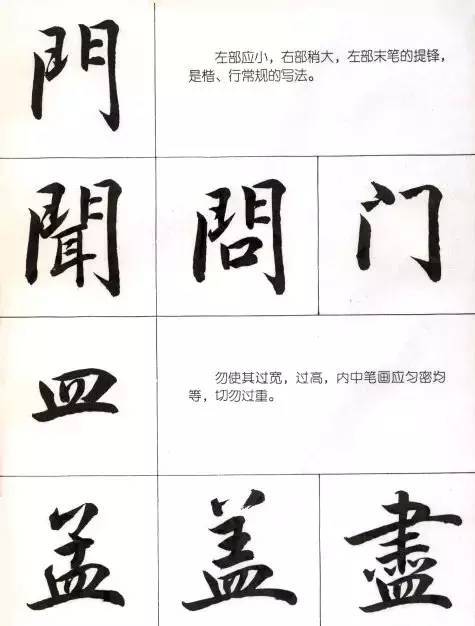 門
左部应小，右部稍大，左部末笔的提锋，
是楷、行常规的写法。
聞 問 门
皿
勿使其过宽，过高，内中笔画应匀密均
等，切勿过重。
孟 盖 盡